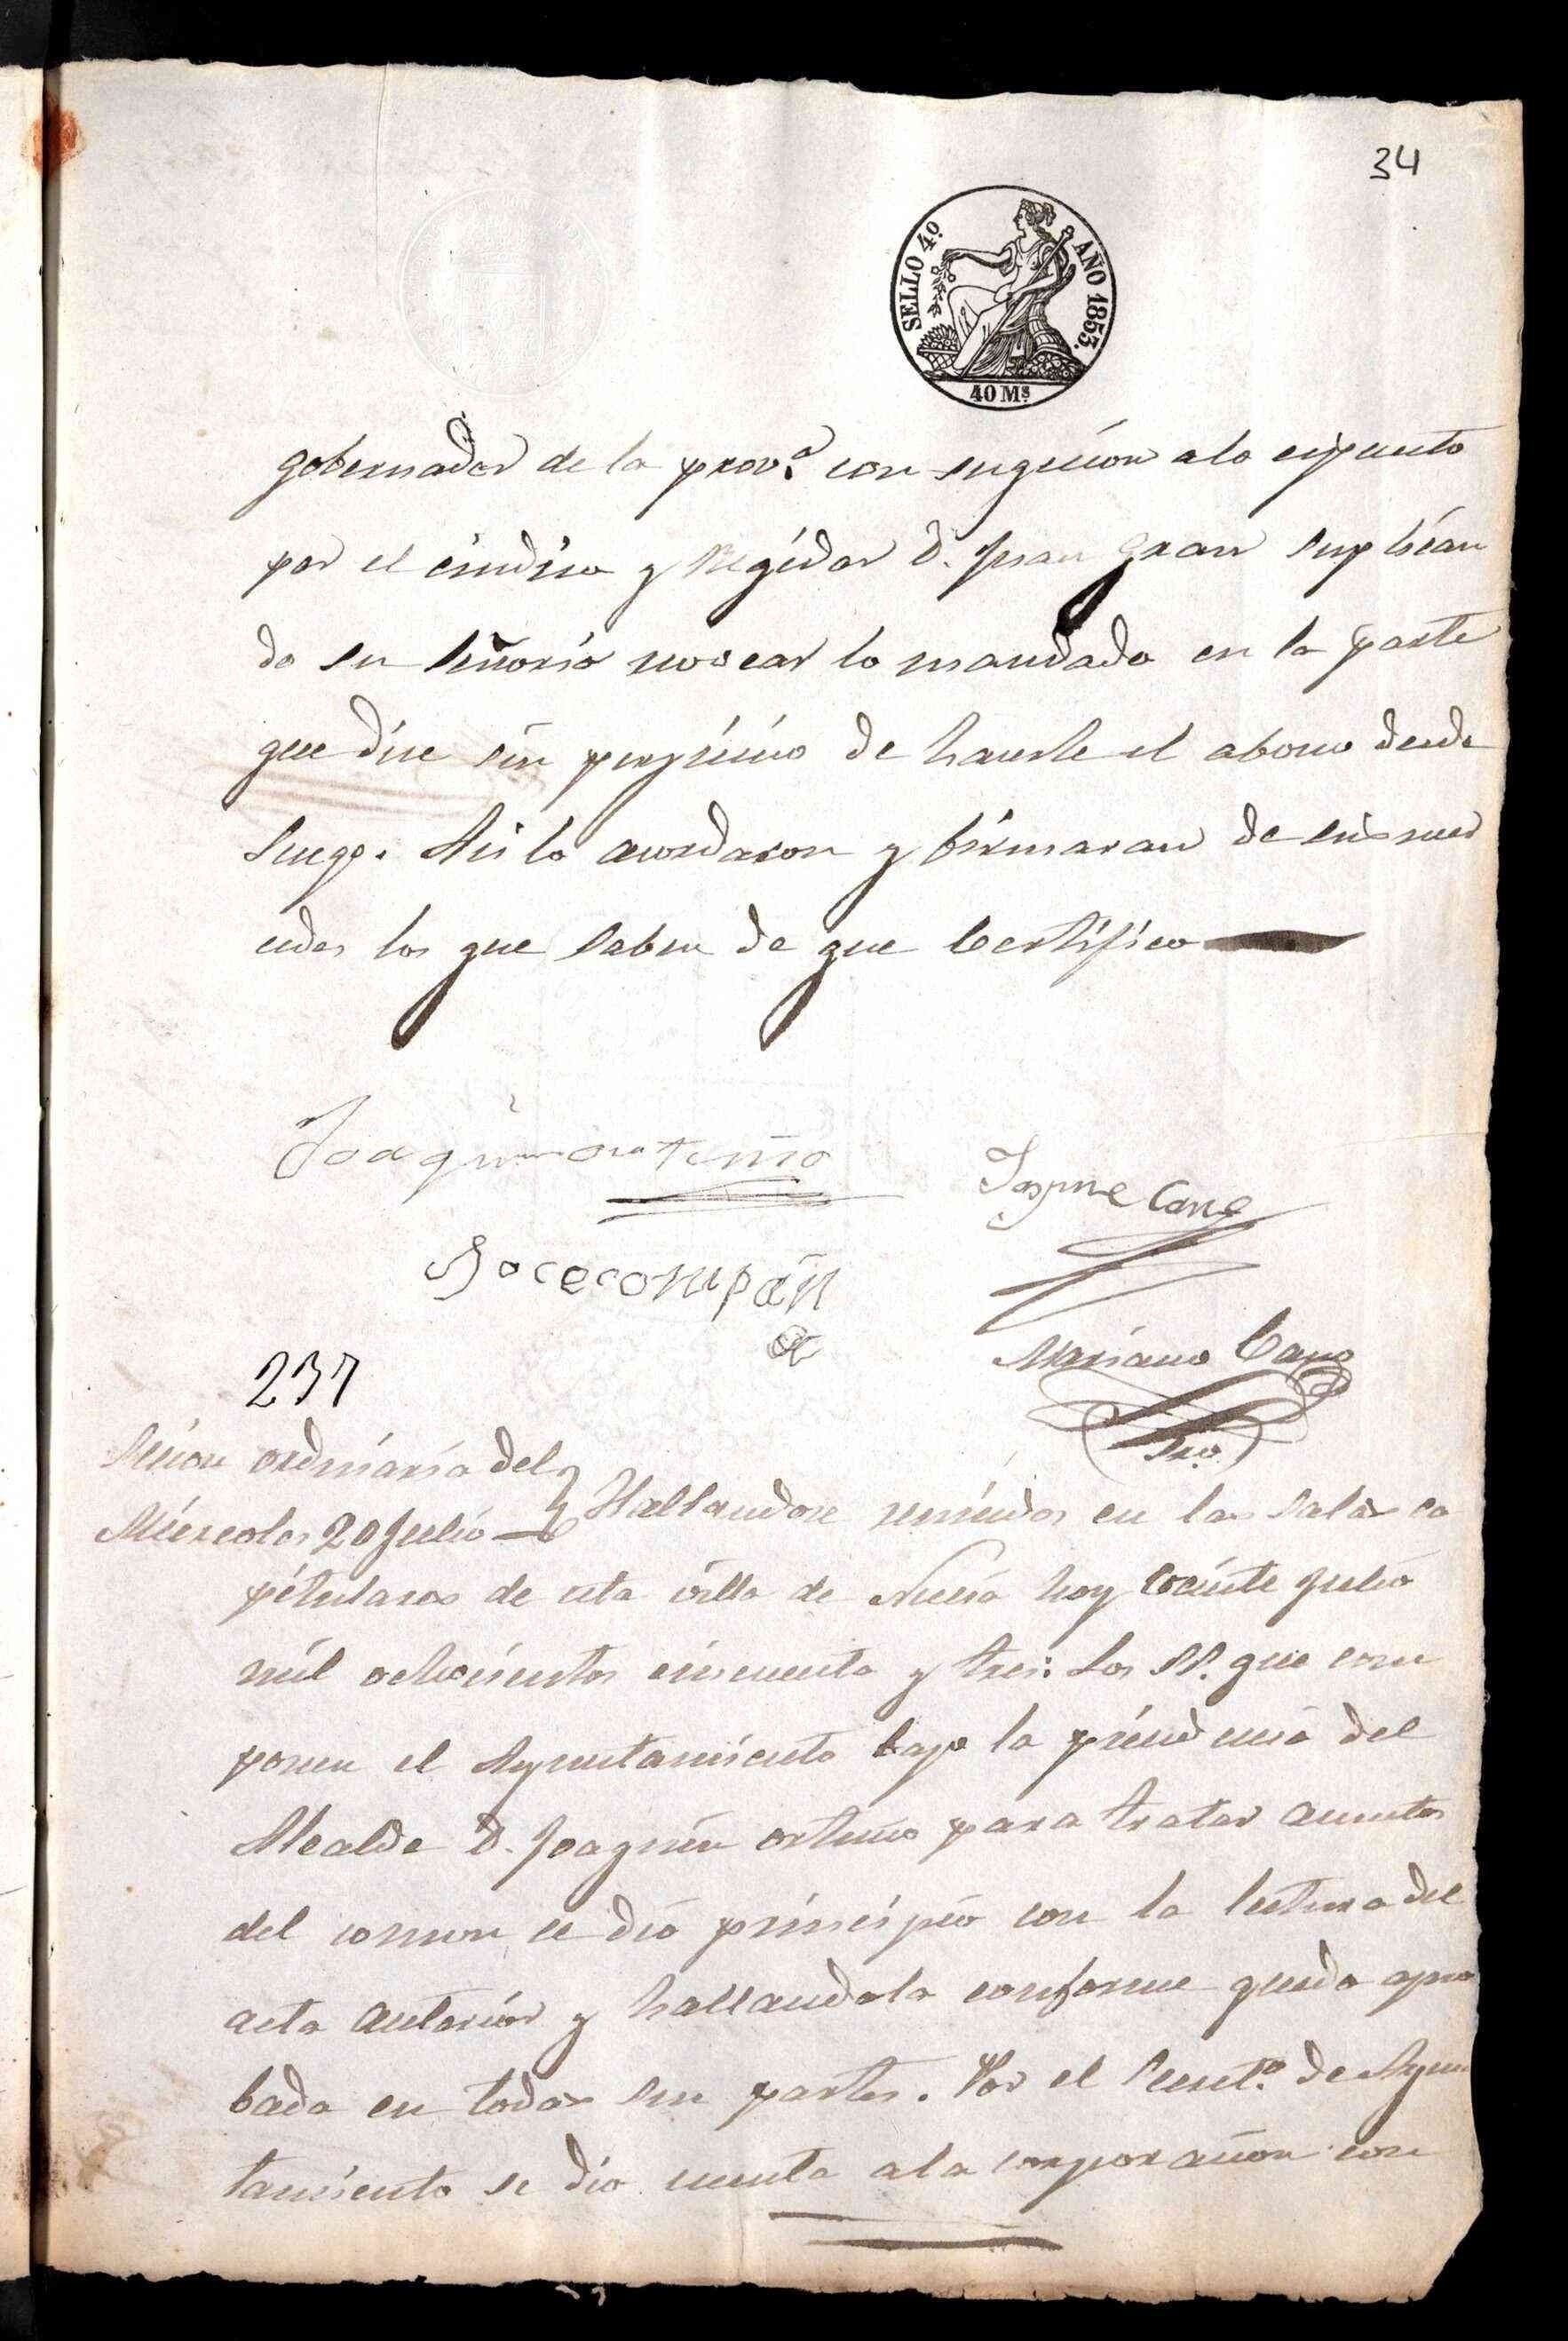 34
SELLO 4º AÑO 1853.
40 Ms.
gobernador de la prov.ª con sugecion alo espuesto
por el sindico y Regidor D. Juan Gran suplican
do su señoria revocar lo mandado en la parte
que dice sin perjuicio de hacerle el abono desde
luego. Asi lo acordaron y firmaran de sus mer
cedes los que saben de que Certifico
Joaquin ortuño
Jayme Cano
Jocecompañ
Mariano Cano
Srio
237
Secion ordinaria del
Miercoles 20 Julio
Hallandose reunidos en las salas ca
pitulares de esta villa de Nucia hoy veinte julio
mil ochocientos cincuenta y tres: Los SS. que com
ponen el Ayuntamiento bajo la presidencia del
Alcalde D. Joaquin ortuño para tratar asuntos
del comun se dio principio con la lectura del
acta anterior y hallandola conforme queda apro
bada en todas sus partes. Por el Secret.º de Ayun
tamiento se dio cuenta ala corporacion con